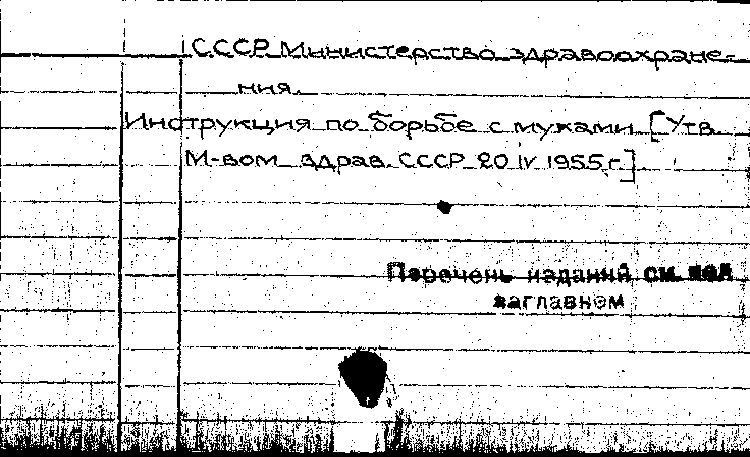 СССР Министерство здравоохране-
ния.
Инструкция по борьбе с мухами [Утв.
М-вом здрав. СССР 20 IV 1955 г.]
Перечень изданий см. под
заглавием